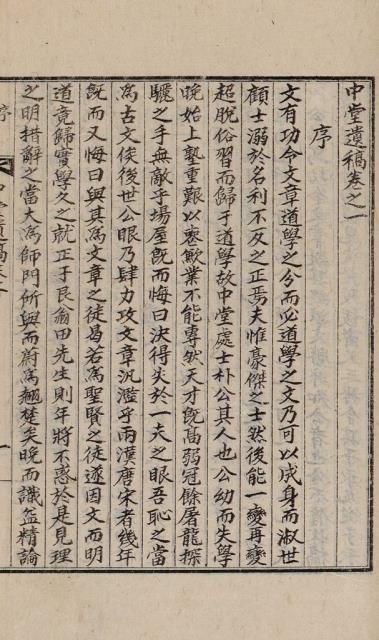 中堂遺稿卷之一
序
文有功令文章道學之分而必道學之文乃可以成身而淑世
顧士溺於名利不反之正焉夫惟豪傑之士然後能一變再變
超脫俗習而歸于道學故中堂處士朴公其人也公幼而失學
晚始上塾重艱以專業不能專然天才旣高弱冠餘屠龍探
驪之手無敵乎場屋旣而悔曰決得失於一夫之眼吾恥之當
爲古文俟後世公眼乃肆力攻文章汎濫乎兩漢唐宋者幾年
旣而又悔曰與其爲文章之徒曷若爲聖賢之徒遂因文而明
道竟歸實學久之就正于艮翁田先生則年將不惑於是見理
之明措辭之當大爲師門所與而蔚爲翹楚矣晚而識益精論